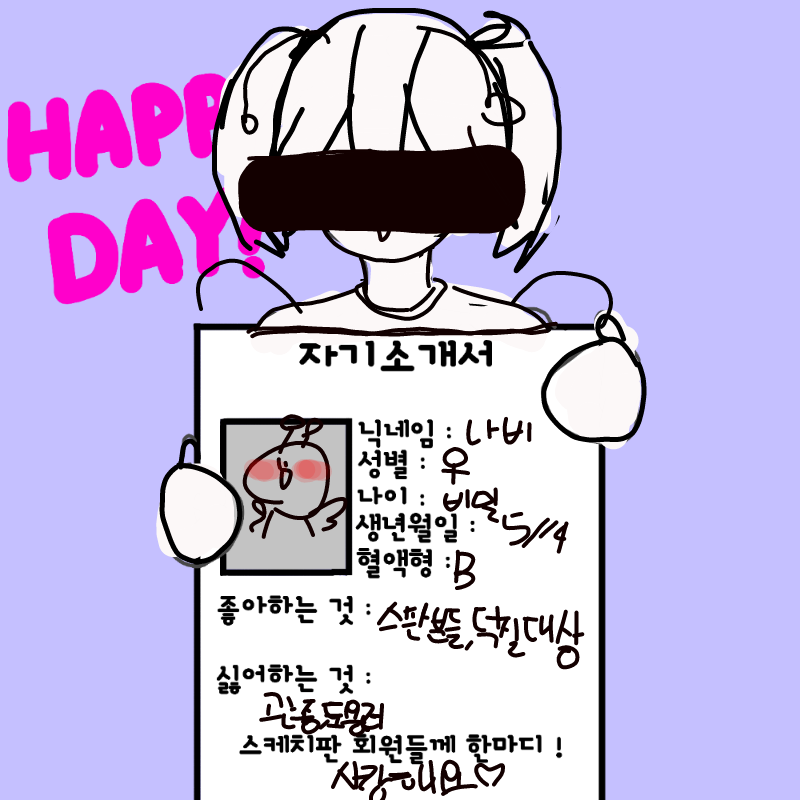 HAPPY
DAY!
자기소개서
닉네임 : 나비
성별 : 우
나이 : 비밀
생년월일 : 5/14
혈액형 : B
좋아하는 것 : 스판분들, 덕질대상
싫어하는 것 :
관종, 도용러
스케치판 회원들께 한마디 !
사랑해요♡